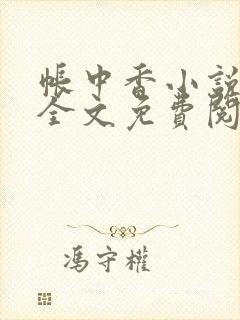 帳中香小說
全文免費閱
馮守權